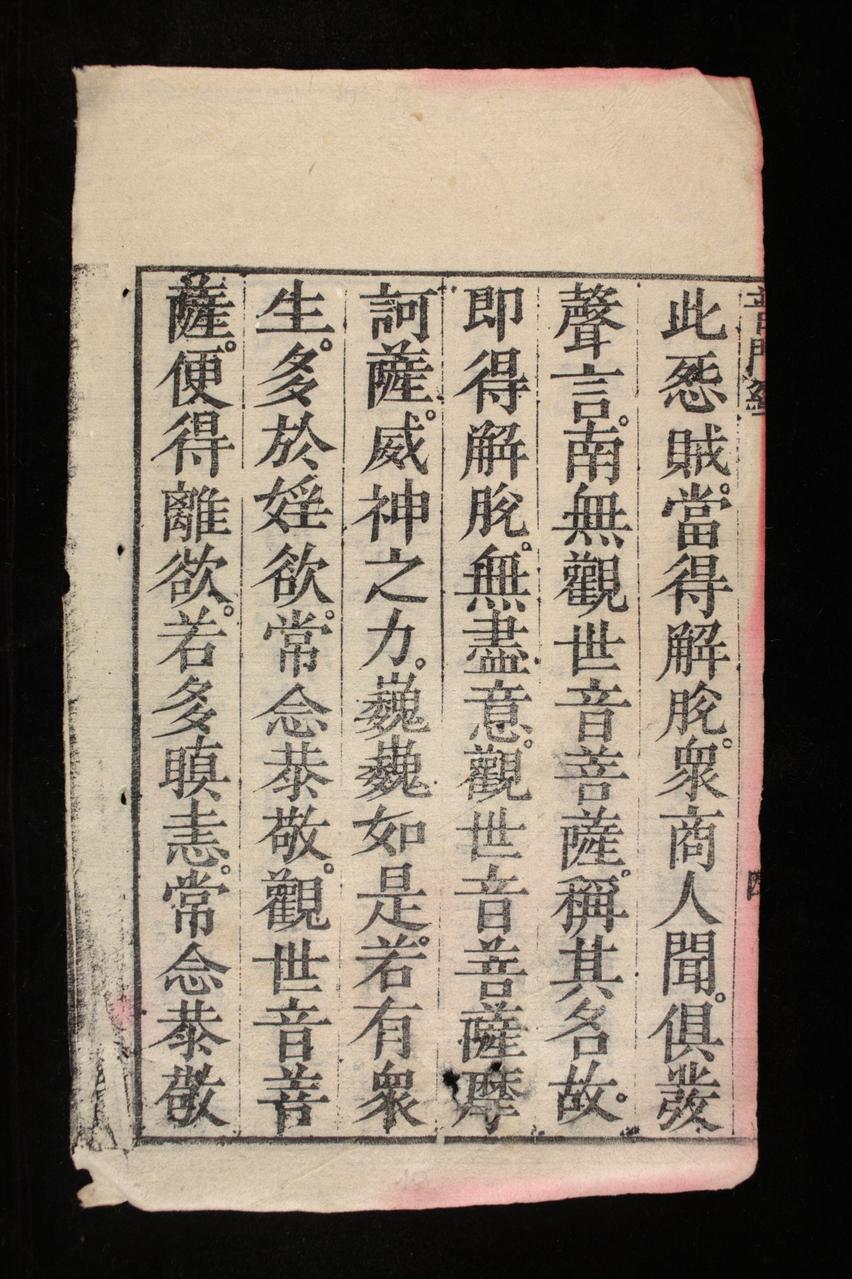 普門經
四
此𢙣賊。當得解脫。衆商人聞。俱發
聲言。南無觀世音菩薩。稱其名故。
即得解脫。無盡意。觀世音菩薩摩
訶薩。威神之力。巍巍如是。若有衆
生。多於婬欲。常念恭敬。觀世音菩
薩。便得離欲。若多瞋恚。常念恭敬